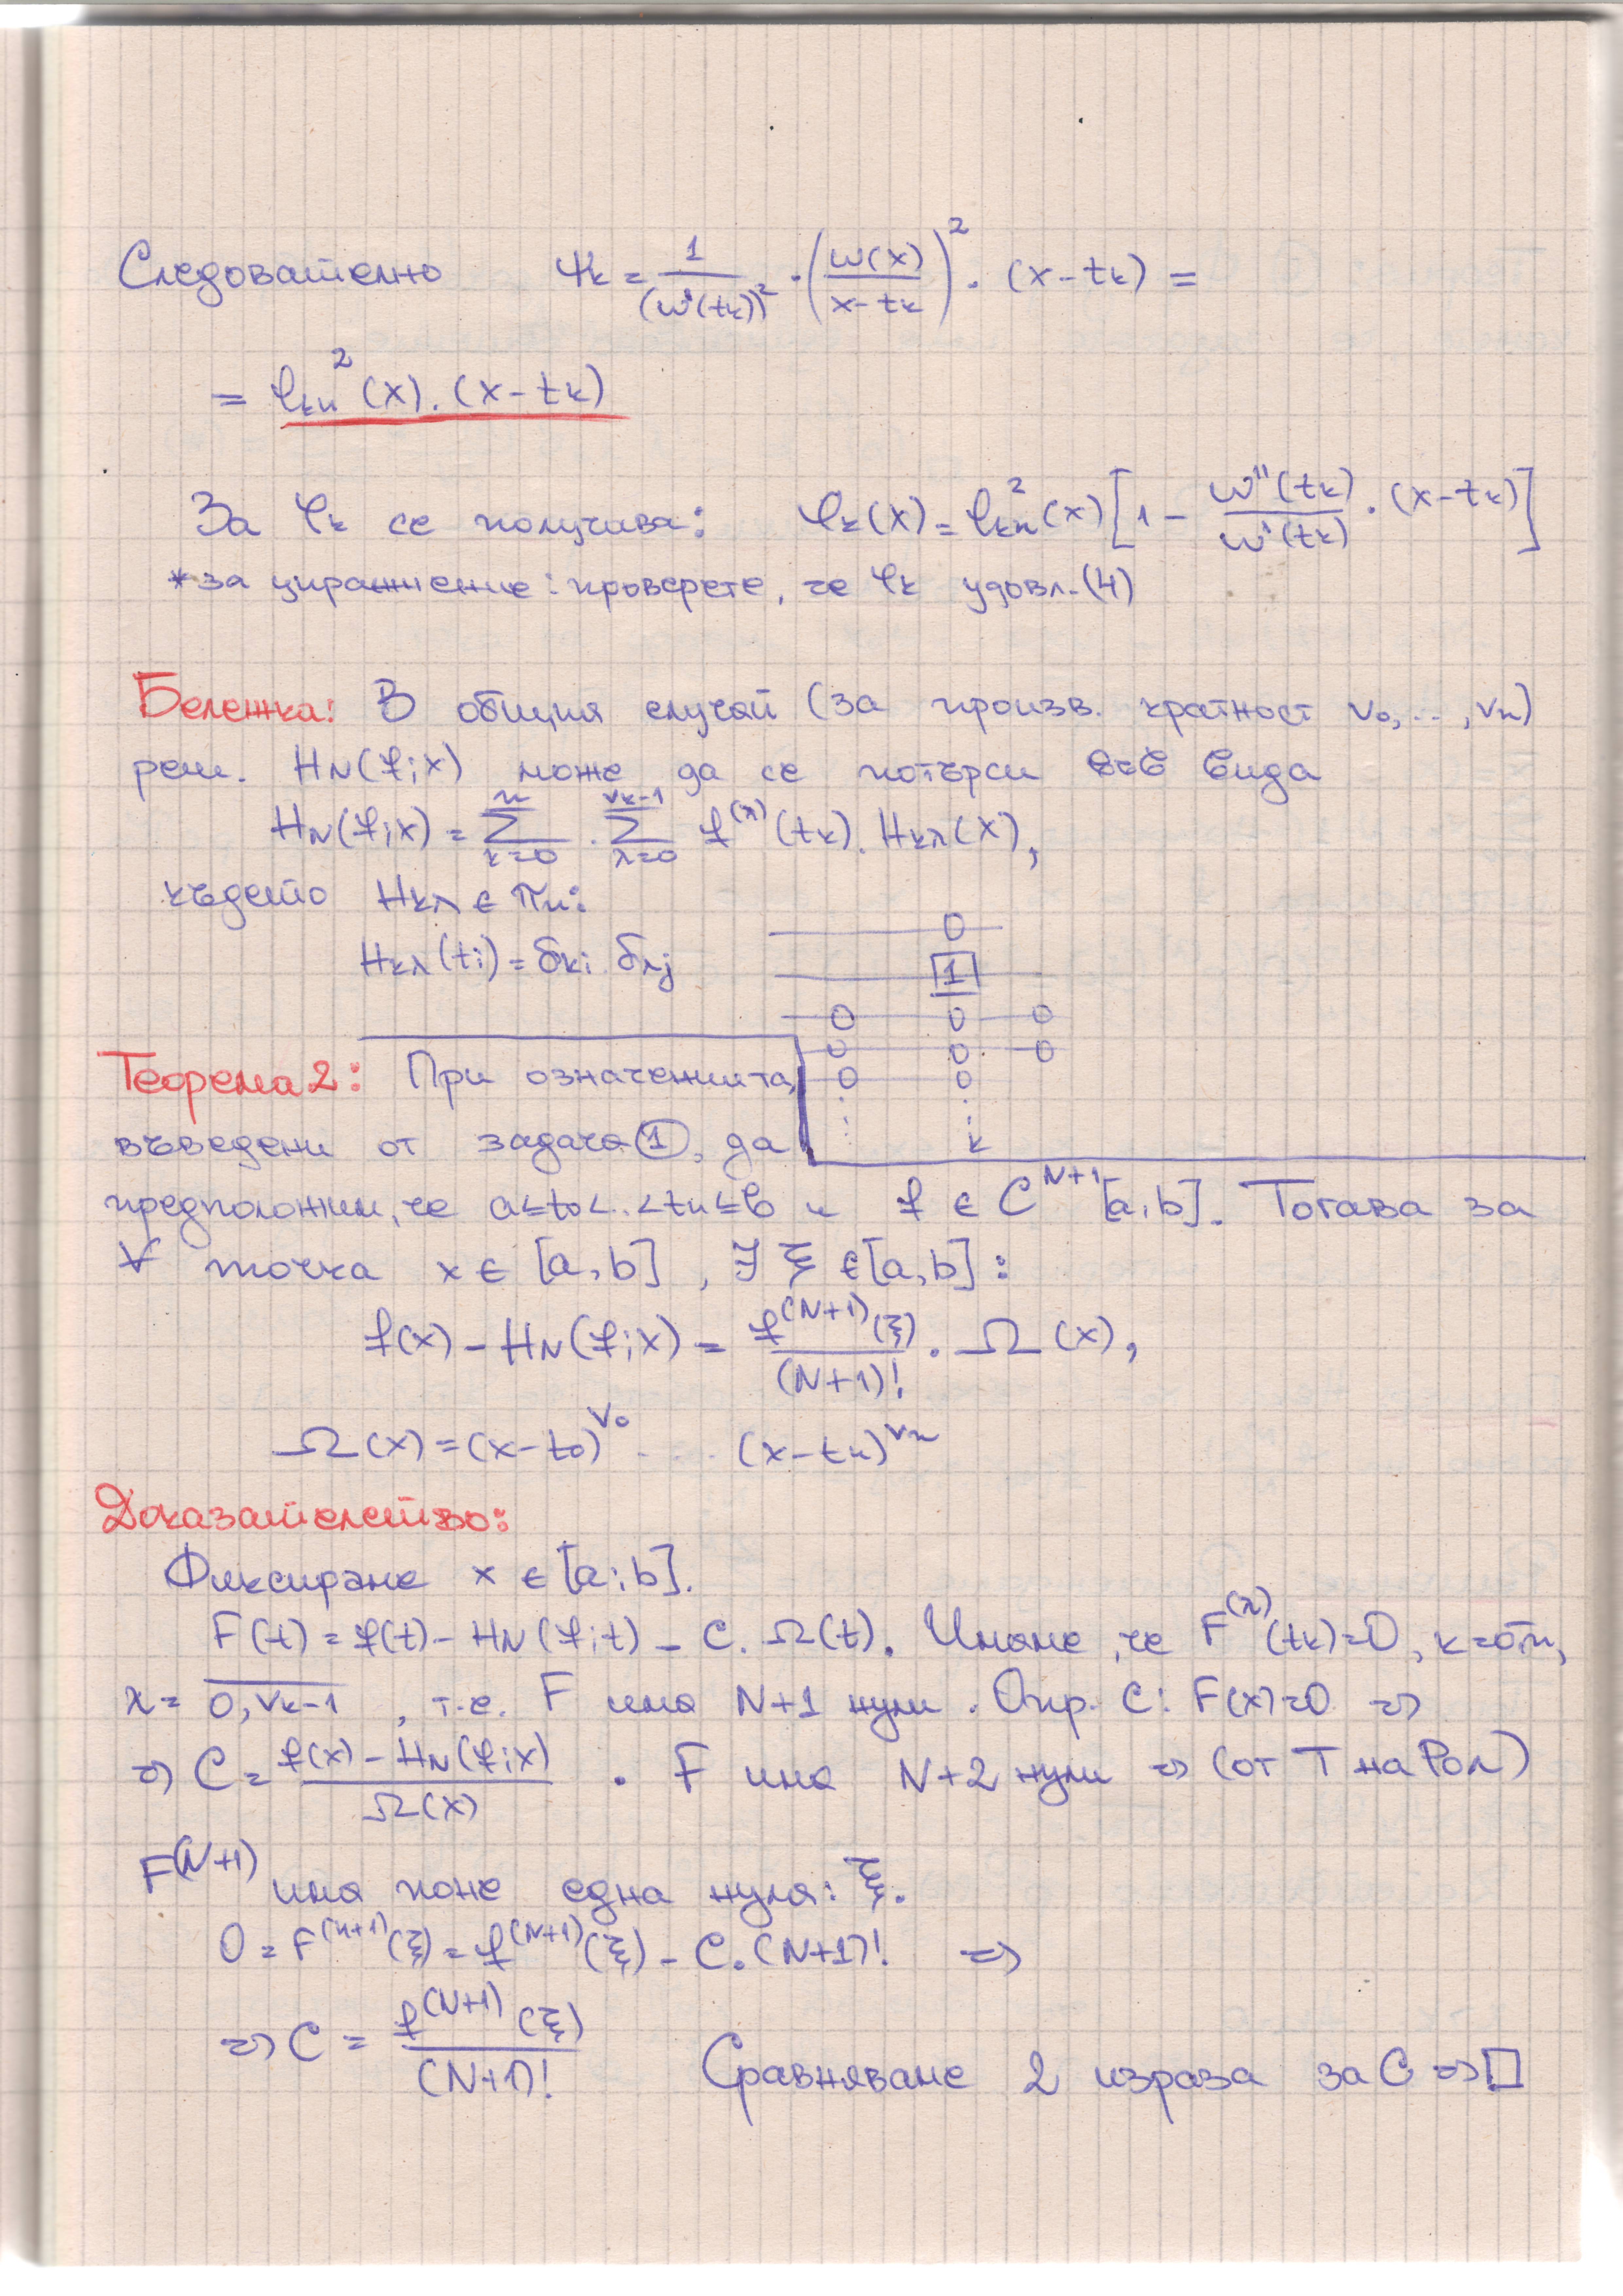 Следователно ψk = 1/(ω'(tk))² · (ω(x)/(x-tk))² · (x-tk) =
= ℓkn²(x).(x-tk)
За φk се получава: φk(x) = ℓkn²(x)[1 - ω''(tk)/ω'(tk) · (x-tk)]
*за упражнение: проверете, че φk удовл.(4)
Бележка: В общия случай (за произв. кратност ν0,..,νn)
реш. HN(f;x) може да се потърси във вида
HN(f;x) = Σ_{k=0}^{n} . Σ_{λ=0}^{νk-1} f^(λ)(tk). Hkλ(x),
където Hkλ ∈ πn:
Hkλ(ti) = δki δλj
0
1
0 0 0
0 0 0
0 0
. .
: :
k
Теорема 2: При означенията,
въведени от задача ①, да
предположим, че a≤t0<..<tn≤b и f ∈ C^{N+1}[a,b]. Тогава за
∀ точка x ∈ [a,b], ∃ ξ ∈[a,b]:
f(x) - HN(f;x) = f^(N+1)(ξ)/(N+1)! . Ω(x),
Ω(x) = (x-t0)^ν0 .... (x-tn)^νn
Доказателство:
Фиксираме x ∈ [a;b].
F(t) = f(t) - HN(f;t) - C. Ω(t). Имаме, че F^(λ)(tk)=0, k=0,n,
λ = 0,νk-1, т.е. F има N+1 нули. Опр. C: F(x)=0 =>
=> C = (f(x) - HN(f;x))/Ω(x) . F има N+2 нули => (от Т на Рол)
F^(N+1) има поне една нула: ξ.
0 = F^(n+1)(ξ) = f^(N+1)(ξ) - C.(N+1)! =>
=> C = f^(N+1)(ξ)/(N+1)! Сравняваме 2 израза за C => □